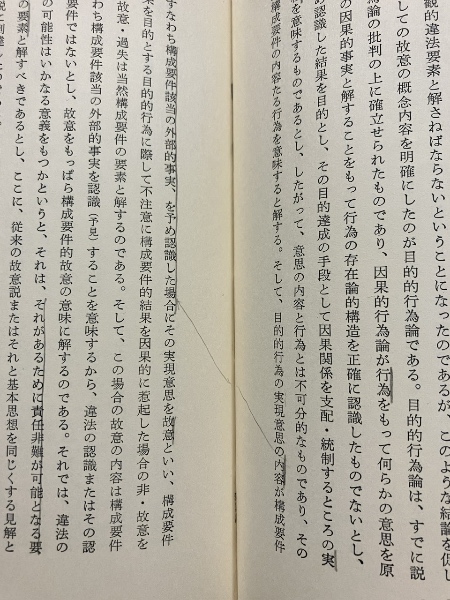 観的違法要素と解さねばならないということになったのであるが、このような結論を促し
しての故意の概念内容を明確にしたのが目的的行為論である。目的的行為論は、すでに説
為論の批判の上に確立せられたものであり、因果的行為論が行為をもって何らかの意思を原
の因果的事実と解することをもって行為の存在論的構造を正確に認識したものでないとし、
め認識した結果を目的とし、その目的達成の手段として因果関係を支配・統制するところの実
を意味するものであるとし、したがって、意思の内容と行為とは不可分的なものであり、その
構成要件の内容たる行為を意味すると解する。そして、目的的行為の実現意思の内容が構成要件
すなわち構成要件該当の外部的事実、を予め認識した場合にその実現意思を故意といい、構成要件
果を目的とする目的的行為に際して不注意に構成要件的結果を因果的に惹起した場合の非・故意を
故意・過失は当然構成要件の要素と解するのである。そして、この場合の故意の内容は構成要件
わち構成要件該当の外部的事実を認識（予見）することを意味するから、違法の認識またはその認
要件ではないとし、故意をもっぱら構成要件的故意の意味に解するのである。それでは、違法の
の可能性はいかなる意義をもつかというと、それは、それがあるために責任非難が可能となる要
の要素と解すべきであるとし、ここに、従来の故意説またはそれと基本思想を同じくする見解と